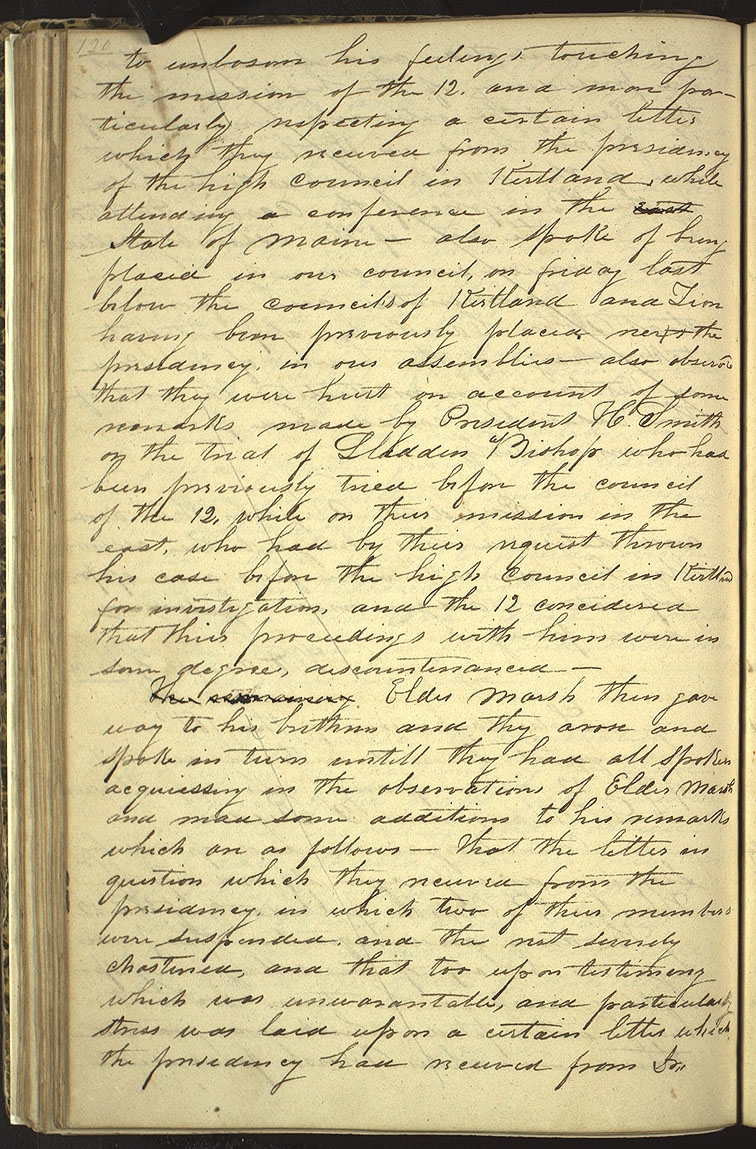 120
to unbosom his feelings touching
the mission of the 12. and more par-
ticularly respecting a certain letter
which they received from the presidency
of the high council in Kirtland, while
attending a conference in the east
State of Maine — also spoke of being
placed in our council, on friday last
below the council's of Kirtland and Zion
having been previously placed next the
presidency, in our assemblies — also observed
that they were hurt on account of some
remarks made by President H. Smith
on the trial of Gladden Bishop who had
been previously tried before the council
of the 12, while on their mission in the
east, who had by their request thrown
his case before the high council in Kirtland
for investigation, and the 12 concidered
that their proceedings with him were in
some degree, discountenanced —
Elder Marsh then gave
way to his brethren and they arose and
spoke in turn untill they had all spoken
acquiessing in the observations of Elder Marsh
and mad some additions to his remarks
which are as follows — That the letter in
question which they received from the
presidency, in which two of their members
were suspended, and the rest severely
chastened, and that too upon testimony
which was unwarantable, and particularly
stress was laid upon a certain letter which
the presidency had received from Dr.